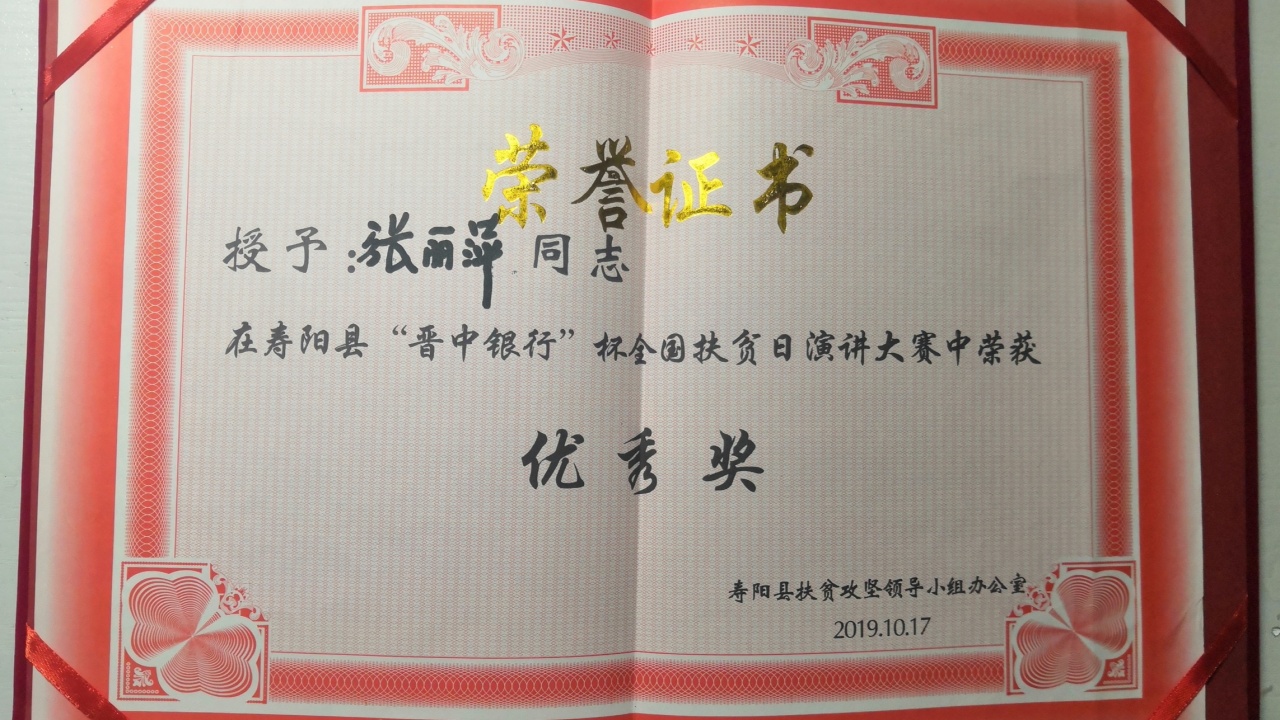 荣誉证书
授予:张丽萍 同志
在寿阳县“晋中银行”杯全国扶贫日演讲大赛中荣获
优秀奖
寿阳县扶贫攻坚领导小组办公室
2019.10.17